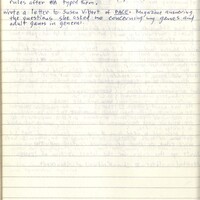 rules after type them.
wrote a letter to Susan V. Pert of PACE. Magazine answering
the questions she asked me concerning my games and
adult games in general